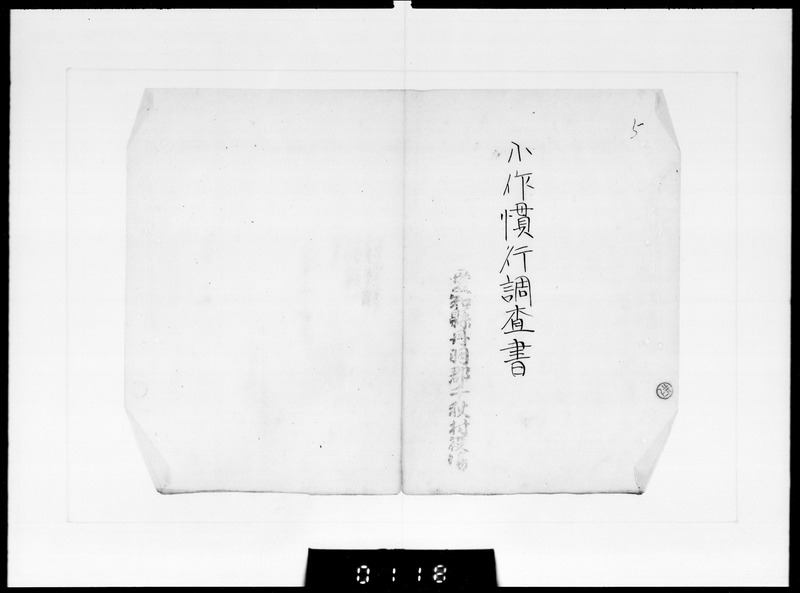 5
小作慣行調査書
愛知縣丹羽郡千秋村役場
0118